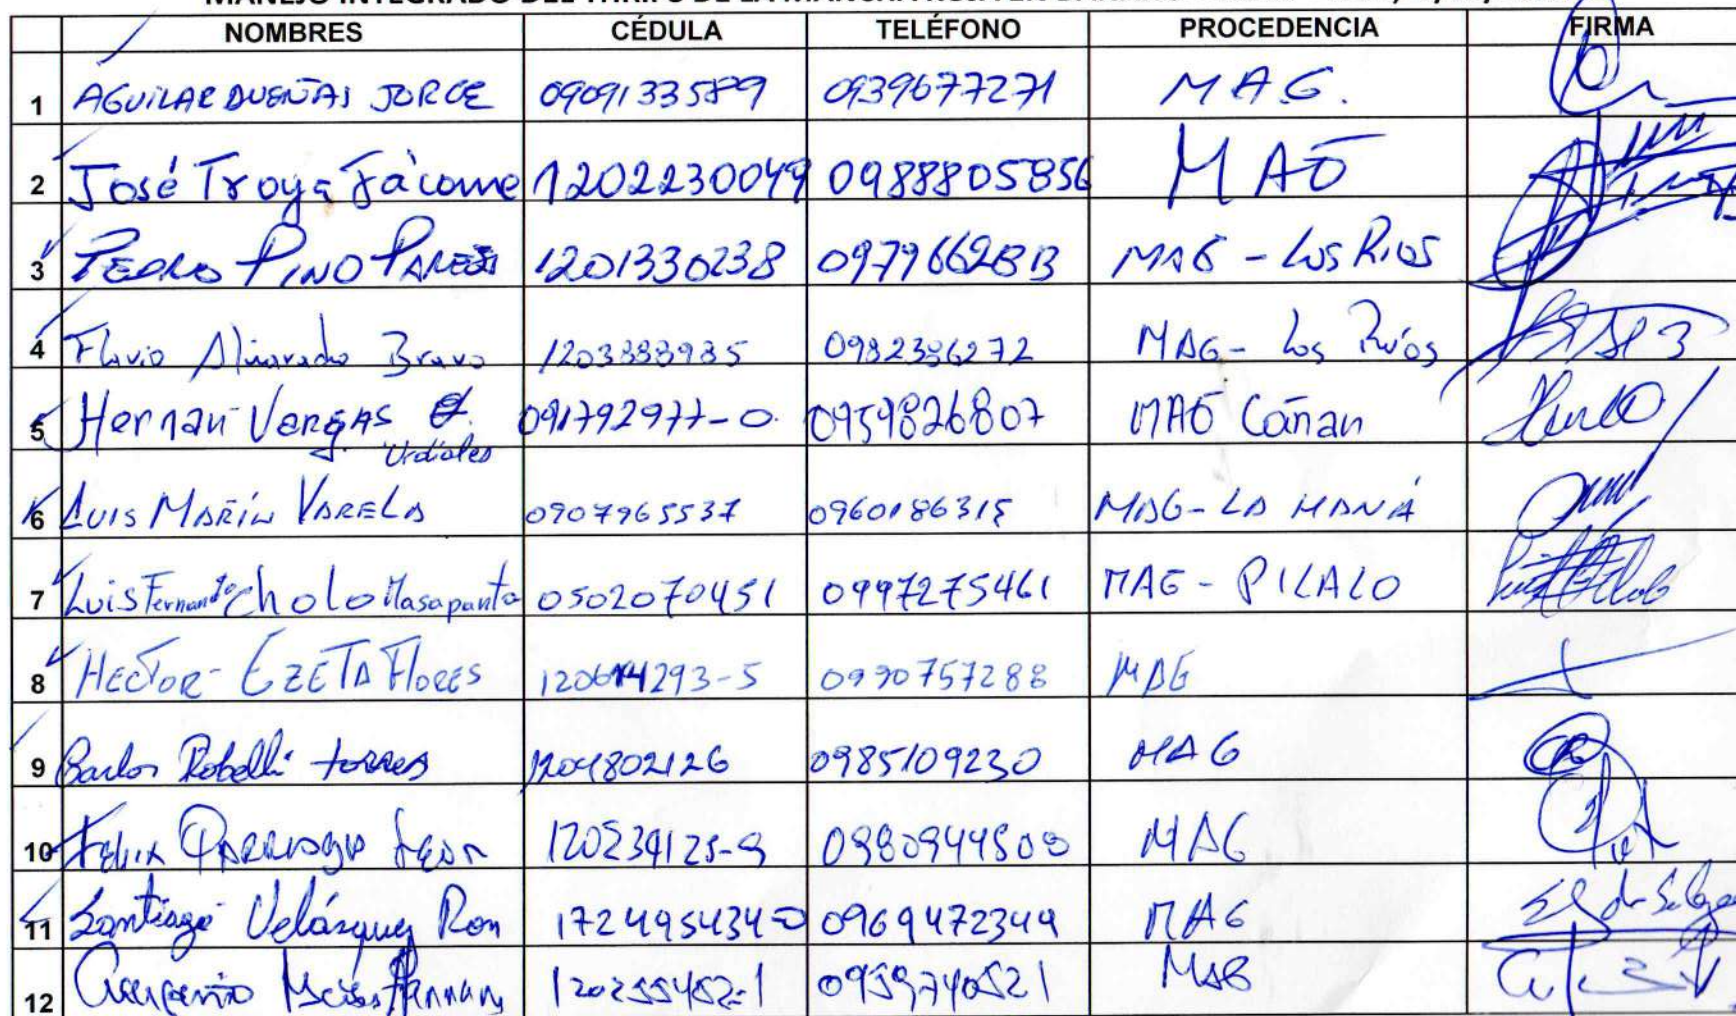 NOMBRES CÉDULA TELÉFONO PROCEDENCIA FIRMA
1 AGUILAR DUEÑAS JORGE 0909133589 0939677271 MAG.
2 José Troya Jácome 1202230049 0988805856 MAG
3 PEDRO PINO PAREDES 1201330238 MAG - LOS RIOS
4 Flavio Alvarado Bravo 1203888985 0982386272 MAG - Los Ríos
5 Hernan Vargas 091792977-0 0959826807 MAG Cañar
Urdiales
6 LUIS MARÍN VARELA 0907965537 0960186315 MAG - LA MANÁ
7 Luis Fernando Cholo Masapanta 0502070451 0997275461 MAG - PILALO
8 HECTOR - EZETA FLORES 0990757288 MAG
9 Carlos Robelli torres 1204802126 0985109230 MAG
10 FELIX LEON 120534125-9 0980944508 MAG
11 Santiago Velásquez Ron 172495434-0 0969472349 MAG
12 120255452-1 0959740521 MAG